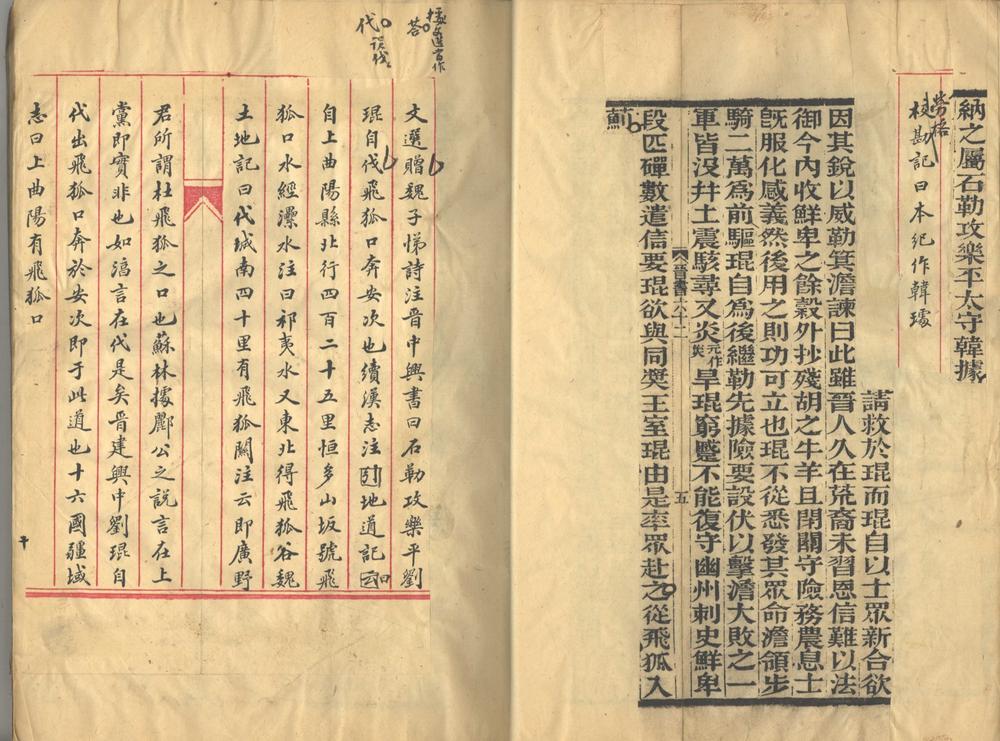 納之屬石勒攻樂平太守韓據
勞格
校勘記曰本紀作韓璩
請救於琨而琨自以士眾新合欲
因其銳以威勒箕澹諫曰此雖晉人久在荒裔未習恩信難以法
御今內收鮮卑之餘穀外抄殘胡之牛羊且閉關守險務農息士
旣服化感義然後用之則功可立也琨不從悉發其眾命澹領步
騎二萬爲前驅琨自爲後繼勒先據險要設伏以擊澹大敗之一
軍皆没并土震駭尋又炎元作災旱琨窮蹙不能復守幽州刺史鮮卑
晉書六十二
五
段匹磾數遣信要琨欲與同奬王室琨由是率眾赴之從飛狐入
薊
據選當作
荅
代誤伐
文選贈魏子悌詩注晉中興書曰石勒攻樂平劉
琨自伐飛狐口奔安次也續漢志注引地道記曰
自上曲陽縣北行四百二十五里恒多山坂號飛
狐口水經㶟水注曰祁夷水又東北得飛狐谷魏
土地記曰代城南四十里有飛狐關注云即廣野
君所謂杜飛狐之口也蘇林據酈公之說言在上
黨即實非也如淳言在代是矣晉建興中劉琨自
代出飛狐口奔於安次即于此道也十六國疆域
志曰上曲陽有飛狐口